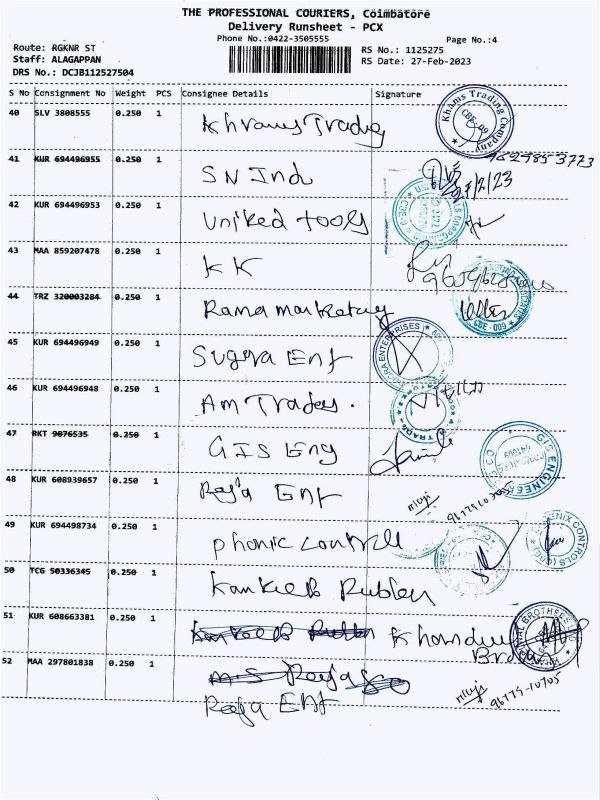 THE PROFESSIONAL COURIERS, Coimbatore
Delivery Runsheet - PCX
Phone No.:0422-3505555
Page No.:4
Route: RGKNR ST
Staff: ALAGAPPAN
DRS No.: DCJB112527504
RS No.: 1125275
RS Date: 27-Feb-2023
S No Consignment No Weight PCS Consignee Details Signature
40 SLV 3808555 0.250 1 Khrams Trading
Khams Trading Company CBE-09
41 KUR 694496955 0.250 1 SN Ind
9629853773
27/2/23
42 KUR 694496953 0.250 1 Uniked tools
43 MAA 859207478 0.250 1 KK
44 TRZ 320003284 0.250 1 Rama marketing
CBE-009
45 KUR 694496949 0.250 1 Sugira Ent
ENTERPRISES
46 KUR 694496948 0.250 1 Am Trades.
47 RKT 9076535 0.250 1 GIS Eng
GIS ENGINEER
48 KUR 608939657 0.250 1 Raja Ent
49 KUR 694498734 0.250 1 Phonic controll
CONTROLS
50 TCG 50336345 0.250 1 Kankeeb Rubber
51 KUR 608663381 0.250 1
BROTHERS
52 MAA 297801838 0.250 1
Raja Ent
96779-10705